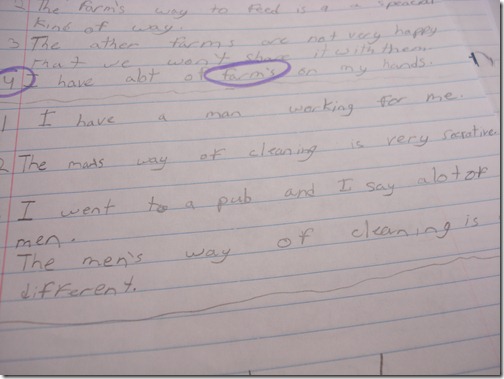 2 The farm's way to feed is a a speacal
kind of way.
3 The ather farms are not very happy
that we won't share it with them.
4 I have abt of farm's on my hands.
1 I have a man working for me.
2 The mans way of cleaning is very secrative.
I went to a pub and I say alot of
men.
The men's way of cleaning is
different.